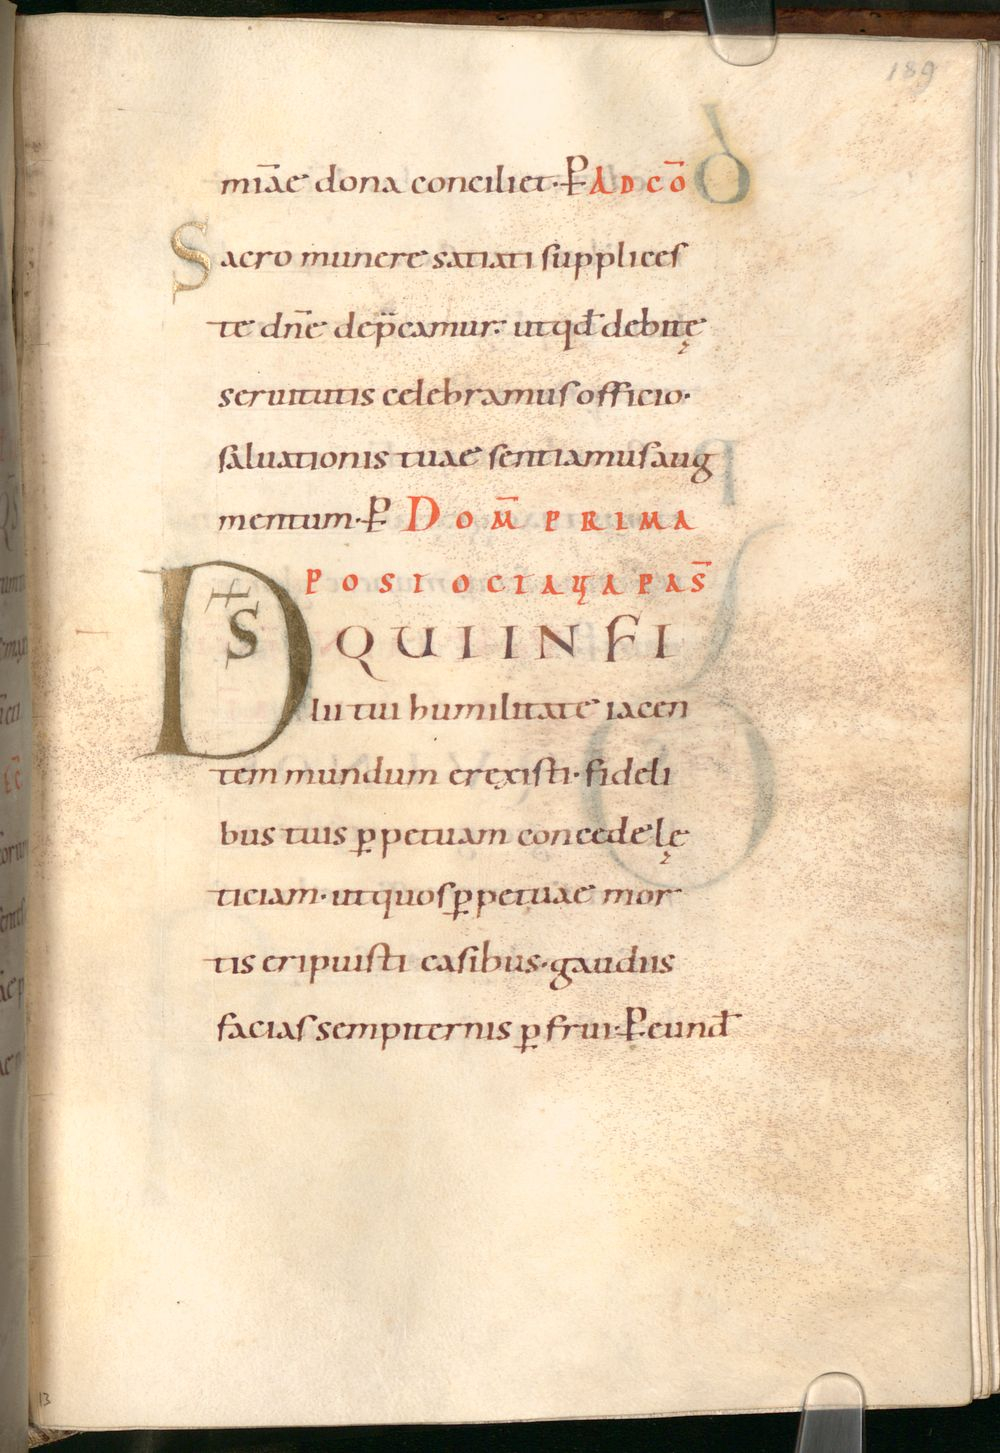 189
mīae dona conciliet · P̶ AD CŌ
Sacro munere satiati supplices
te dn̄e dep̄camur · ut qd̄ debitę
seruitutis celebramus officio ·
saluationis tuae sentiamus aug
mentum · P̶ DOM̄ PRIMA
POST OCTABA PAS̄
DS̄ QUI IN FI
lii tui humilitate iacen
tem mundum erexisti · fideli
bus tuis ꝑpetuam concede lę
ticiam · ut quos ꝑpetuae mor
tis eripuisti casibus · gaudiis
facias sempiternis ꝑfrui · P̶ eund̄
13